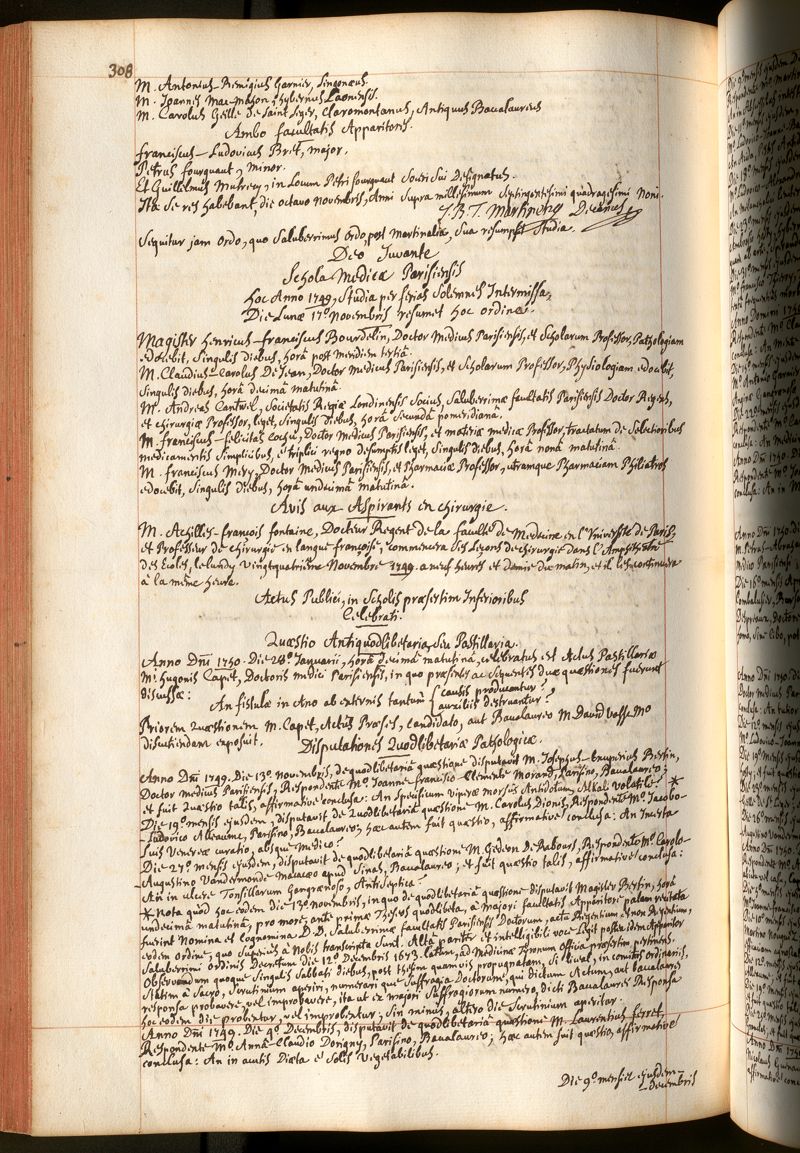 308
M. Antonius-Remigius Garnier, Lingonæus.
M. Joannes Mac-Mahon, hybernus Laonensis.
M. Carolus Geille de Saint Leger, Claromontanus, Antiquus Baccalaureus
Ambo facultatis Apparitores.
franciscus-Ludovicus Bret, major.
Petrus fourquaut, minor.
Et Guillelmus Mutrecy, in Locum Petri fourquaut Soceri sui Designatus.
Ita se res habebant, die octavo novembris, Anni supra millesimum septingentesimi quadragesimi Noni.
J. B. T. Martinenq Decanus
Sequitur jam ordo, quo Saluberrimus ordo, post martinalia, sua resumpsit studia.
Deo Juvante
Schola Medicæ Parisiensis
hoc Anno 1749, Studia per ferias Solemnes Intermissa,
Die Lunæ 17º Novembris resumet hoc ordine.
Magister henricus-franciscus Bourdelin, Doctor Medicus Parisiensis, et Scholarum Professor, Pathologiam
edocebit, singulis diebus, horâ post meridiem tertiâ.
M. Claudius-Carolus De Jean, Doctor medicus Parisiensis, et Scholarum Professor, Physiologiam edocebit,
singulis diebus, horâ decimâ matutinâ.
M. Andreas Cantwel, Societatis Regiæ Londinensis Socius, Saluberrimæ facultatis Parisiensis Doctor Regens,
et chirurgiæ Professor, leget, singulis diebus, horâ secundâ pomeridianâ.
M. franciscus-felicitas Cochu, Doctor Medicus Parisiensis, et materiæ medicæ Professor, tractatum de Selectioribus
medicamentis Simplicibus, e triplici regno desumptis leget, singulis diebus, horâ nonâ matutinâ.
M. franciscus Mery, Doctor Medicus Parisiensis, et Pharmaciæ Professor, utramque Pharmaciam Philiatros
edocebit, singulis diebus, horâ undecimâ matutinâ.
Avis aux Aspirants en chirurgie.
M. Achilles-françois fontaine, Docteur Regent de la faculté de Medecine en l'Université de Paris,
et Professeur de chirurgie en langue françoise, commencera ses Leçons de chirurgie dans l'Amphitéatre
des Ecoles, le lundy vingtquatrieme Novembre 1749. a neuf heures et Demie du matin, et il les continuera
à la même heure.
Actus Publici, in Scholis præsertim Inferioribus
Celebrati.
Quæstio Antiquodlibetaria, seu Pastillaria.
Anno Dñi 1750. Die 28º Januarii, horâ decimâ matutinâ, celebratus est Actus Pastillariæ
Mi. Hugonis Capet, Doctoris medici Parisiensis, in quo præsentes ac sequentes duæ quæstiones fuerunt
discussæ:
An fistulæ in Ano ab externis tantum { causis producantur?
auxiliis destruantur?
Priorem Quæstionem M. Capet, Actûs Præses, candidato, aut Baccalaureo M. David Vasse Mo
discutiendam exposuit.
Disputationes Quodlibetariæ Pathologicæ.
Anno Dñi 1749. Die 13º. Novembris, de quodlibetariâ quæstione disputavit M. Josephus-Exuperius Bertin,
Doctor medicus Parisiensis, Respondente Mº. Joanne-francisco-Clemente Morand, Parisino, Baccalaureo;
et fuit quæstio talis, affirmative conclusa: An Specificum viperæ morsûs Antidotum, Alkali volatile? *
Die 19º. mensis ejusdem, disputavit de Quodlibetariâ quæstione M. Carolus Dionis, Respondente Mº. Jacobo-
Ludovico Alleaume, Parisino, Baccalaureo; hæc autem fuit quæstio, affirmative conclusa: An Incerta
Luis Venereæ curatio, absque medico?
Die 27º. mensis ejusdem, disputavit de quodlibetariâ quæstione M. Gedeon De Rabours, Respondente Mº. Carolo-
Augustino Vandermonde macaæo apud Sinas, Baccalaureo; et fuit quæstio talis, affirmative conclusa:
An in ulcere Tonsillarum Gangrænoso, Antiseptica?
* Nota quod hoc eodem die 13º novembris, in quo de quodlibetariâ quæstione disputavit Magister Bertin, horâ
undecimâ matutinâ, pro more, ante primæ Theseos quodlibeta, a majori facultatis Apparitore palam recitata
fuerint Nomina et Cognomina D.D. Saluberrimæ facultatis Parisiensis Doctorum, actu Regentium et non Regentium,
eodem ordine, quo superius à Nobis transcripta sunt. Altâ pariter et intelligibili voce Legit postea idem Apparitor
Saluberrimi Ordinis Decretum die 12º Decembris 1673. latum, ad Medicinæ Tironum officia præsertim pertinens.
Observandum quoque singulis Sabbati diebus, post thesim quamvis propugnatam, si liceat, in comitiis ordinariis,
Statim à Sacro, Scrutinium aperiri, numerari que Suffragia Doctorum, qui dictum Actum, aut baccalaurei
responsa probavere, vel improbavere, ita ut ex majori Suffragiorum numero, dicti Baccalaurei Responsa
hoc eodem die probentur, vel improbentur; Sin minus, altero die Scrutinium aperitur.
Anno Dñi 1749. Die 4º. Decembris, disputavit de quodlibetariâ quæstione M. Laurentius ferret,
Respondente Mº. Annâ-Claudio Dorigny, Parisino, Baccalaureo; hæc autem fuit quæstio, affirmative
conclusa: An in acutis Diæta e Solis vegetabilibus.
Die 9º. mensis ejusdem
Decembris